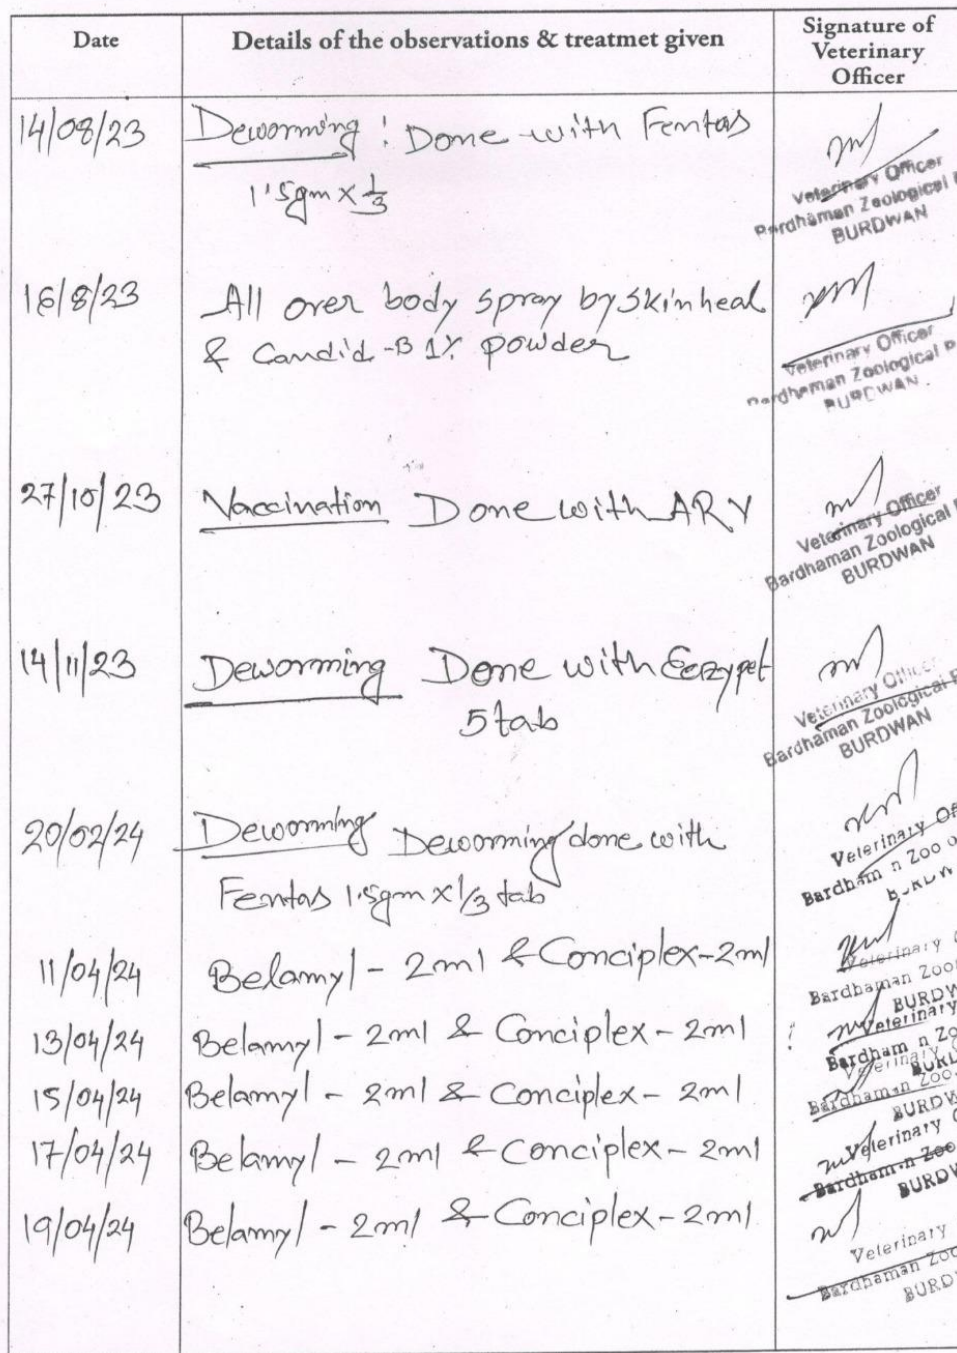 Date
Details of the observations & treatmet given
Signature of
Veterinary
Officer
14/08/23
Deworming : Done with Fentas
1.5gm x 1/3
Veterinary Officer
Bardhaman Zoological P
BURDWAN
16/8/23
All over body spray by skinheal
& Candid-B 1% powder
Veterinary Officer
Bardhaman Zoological P
BURDWAN
27/10/23
Vaccination Done with ARV
Veterinary Officer
Bardhaman Zoological P
BURDWAN
14/11/23
Deworming Done with Eezypet
5 tab
Veterinary Officer
Bardhaman Zoological P
BURDWAN
20/02/24
Deworming Deworming done with
Fentas 1.5gm x 1/3 tab
Veterinary Of
Bardham n Zoo o
BURDW
11/04/24
Belamyl - 2ml & Conciplex-2ml
Veterinary O
Bardhaman Zoo
BURDW
13/04/24
Belamyl - 2ml & Conciplex - 2ml
Veterinary
Bardham n Zo
BURD
15/04/24
Belamyl - 2ml & Conciplex - 2ml
Veterinary O
Bardhaman Zoo
BURDW
17/04/24
Belamyl - 2ml & Conciplex - 2ml
Veterinary O
Bardham n Zoo
BURDW
19/04/24
Belamyl - 2ml & Conciplex - 2ml
Veterinary
Bardhaman Zoo
BURD